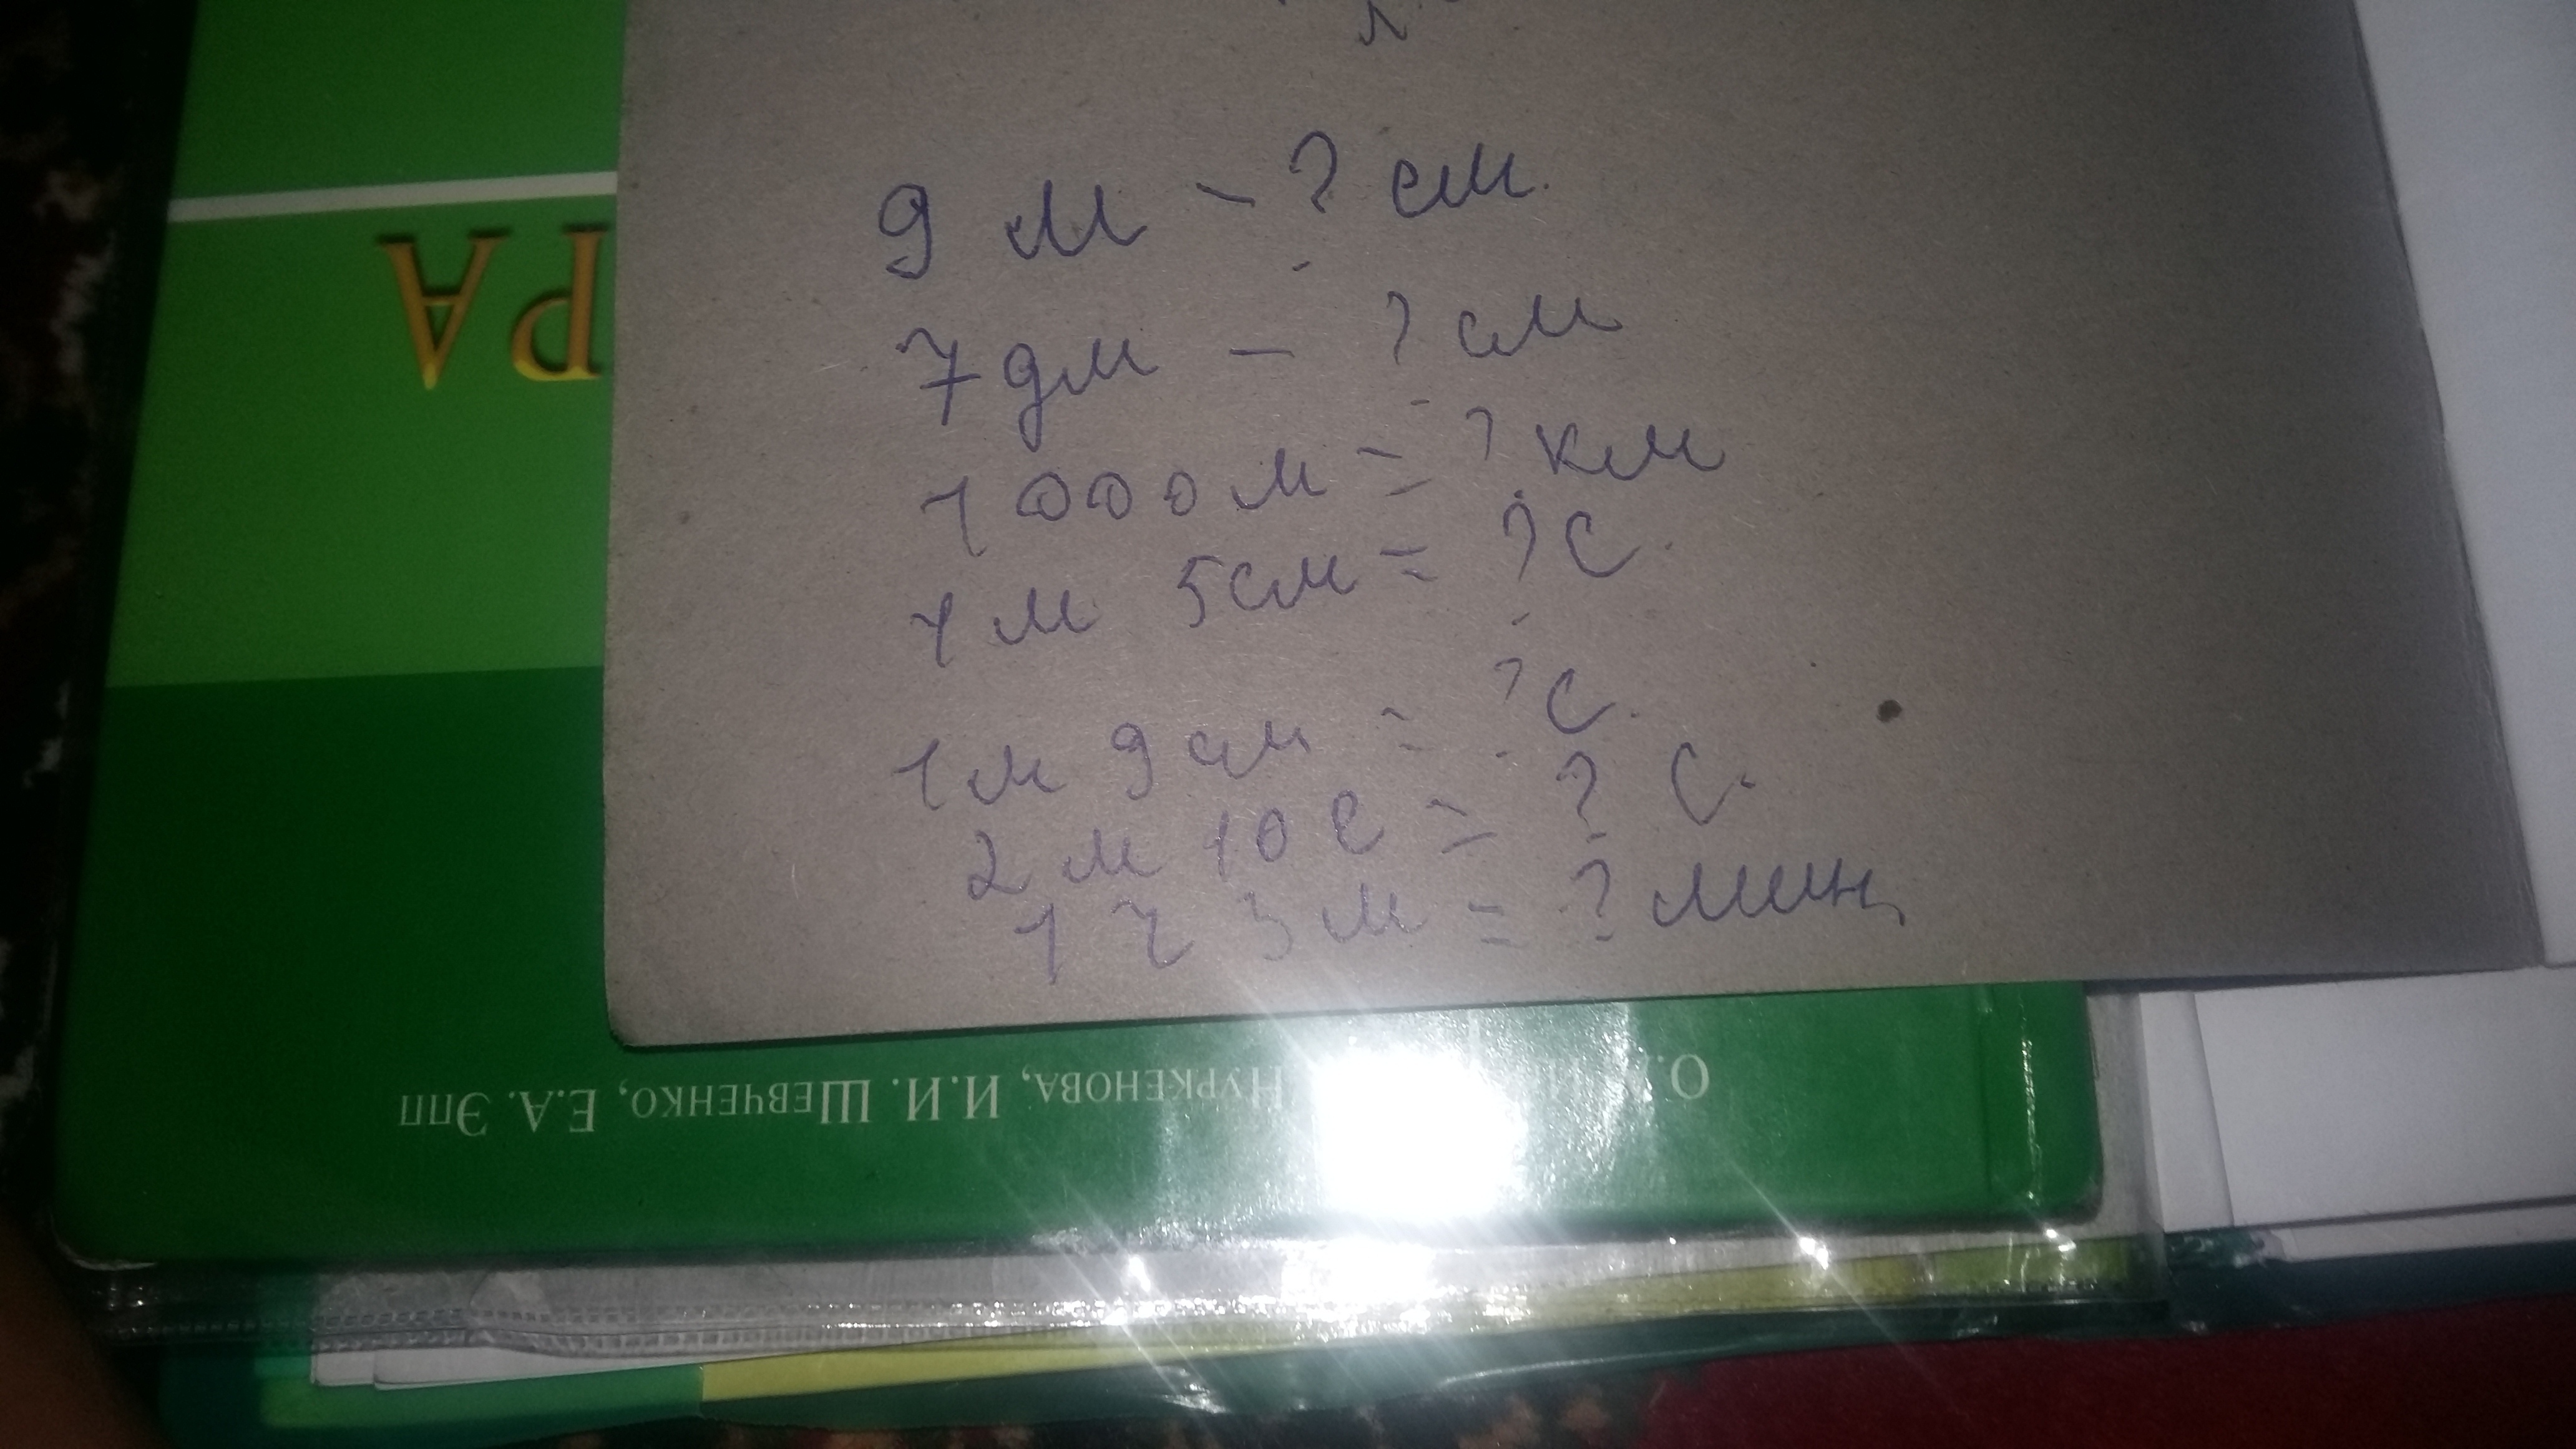 л
9 м - ? см.
7 дм - ? см
1000 м = ? км
1 м 5 см = ? С.
1 м 9 см = ? С.
2 м 10 С = ? С.
1 ч 3 м = ? мин,
РА
НУРКЕНОВА, И.И. ШЕВЧЕНКО, Е.А. ЭПП